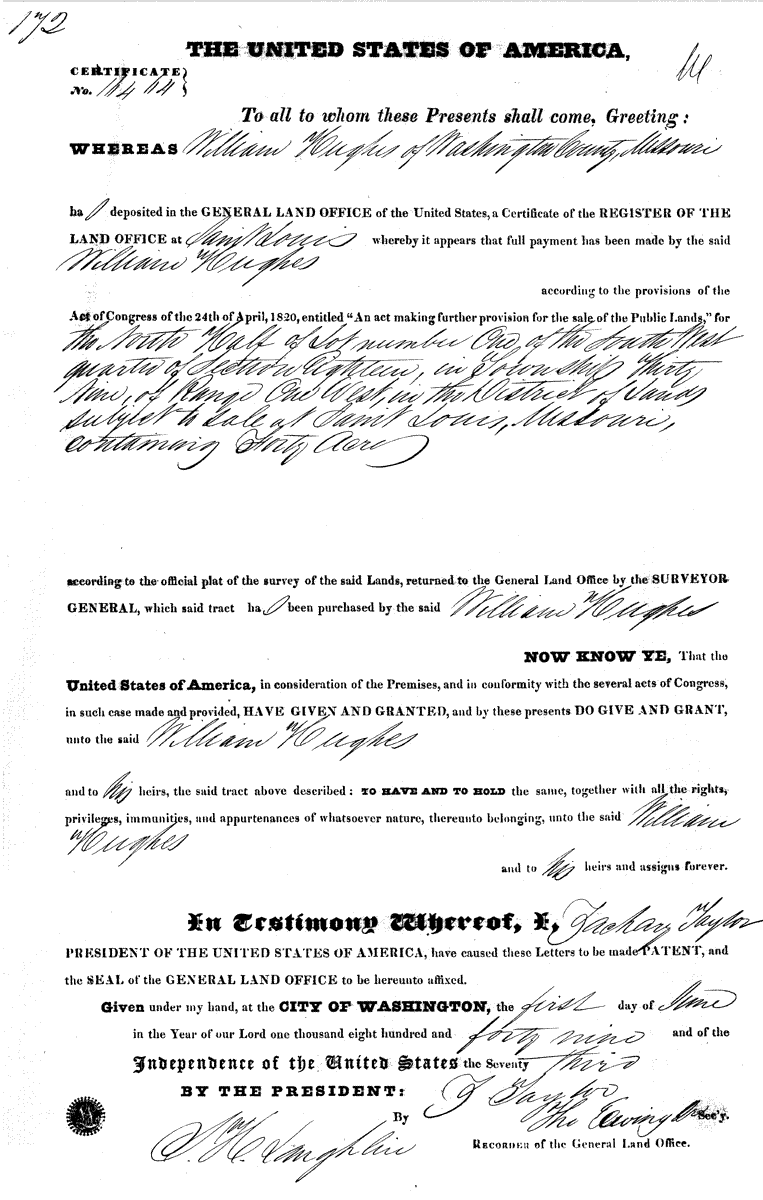 172
THE UNITED STATES OF AMERICA,
CERTIFICATE
No. 16464
To all to whom these Presents shall come, Greeting:
WHEREAS William Hughes of Washington County, Missouri
ha s deposited in the GENERAL LAND OFFICE of the United States, a Certificate of the REGISTER OF THE
LAND OFFICE at Saint Louis whereby it appears that full payment has been made by the said
William Hughes
according to the provisions of the
Act of Congress of the 24th of April, 1820, entitled "An act making further provision for the sale of the Public Lands," for
the North Half of Lot number One, of the South West
quarter of Section Eighteen, in Township Thirty
Nine, of Range One West, in the District of Lands
subject to sale at Saint Louis, Missouri,
containing Forty Acres
according to the official plat of the survey of the said Lands, returned to the General Land Office by the SURVEYOR
GENERAL, which said tract ha s been purchased by the said William Hughes
NOW KNOW YE, That the
United States of America, in consideration of the Premises, and in conformity with the several acts of Congress,
in such case made and provided, HAVE GIVEN AND GRANTED, and by these presents DO GIVE AND GRANT,
unto the said William Hughes
and to his heirs, the said tract above described: TO HAVE AND TO HOLD the same, together with all the rights,
privileges, immunities, and appurtenances of whatsoever nature, thereunto belonging, unto the said William
Hughes
and to his heirs and assigns forever.
In Testimony Whereof, I, Zachary Taylor
PRESIDENT OF THE UNITED STATES OF AMERICA, have caused these Letters to be made PATENT, and
the SEAL of the GENERAL LAND OFFICE to be hereunto affixed.
Given under my hand, at the CITY OF WASHINGTON, the first day of June
in the Year of our Lord one thousand eight hundred and forty nine and of the
Independence of the United States the Seventy third
BY THE PRESIDENT: Z Taylor
By Tho Ewing Jr Sec'y.
S. H. Laughlin RECORDER of the General Land Office.